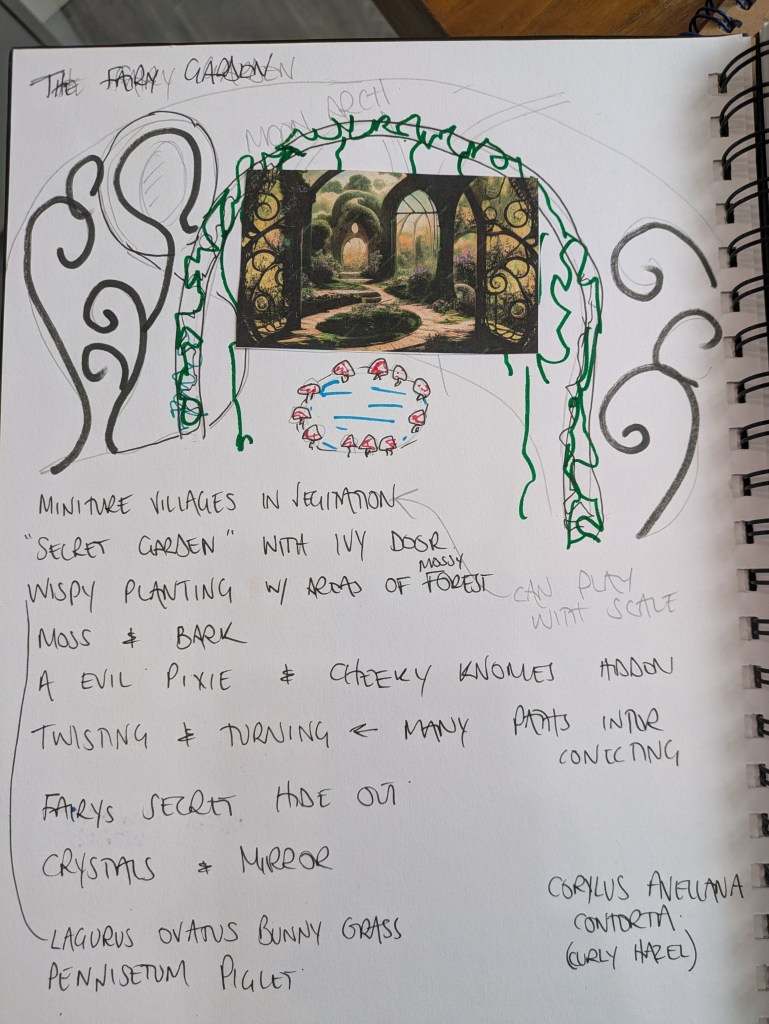 THE FAIRY GARDEN
MOON ARCH
MINITURE VILLAGES IN VEGITATION
"SECRET GARDEN" WITH IVY DOOR
WISPY PLANTING W/ AREAS OF MOSSY FOREST
CAN PLAY
WITH SCALE
MOSS & BARK
A EVIL PIXIE & CHEEKY KNOMES ADDON
TWISTING & TURNING ← MANY PATHS INTOR
CONECTING
FAIRYS SECRET HIDE OUT
CRYSTALS & MIRROR
LAGURUS OVATUS BUNNY GRASS
PENNISETUM PIGLET
CORYLUS AVELLANA
CONTORTA.
(CURLY HAZEL)